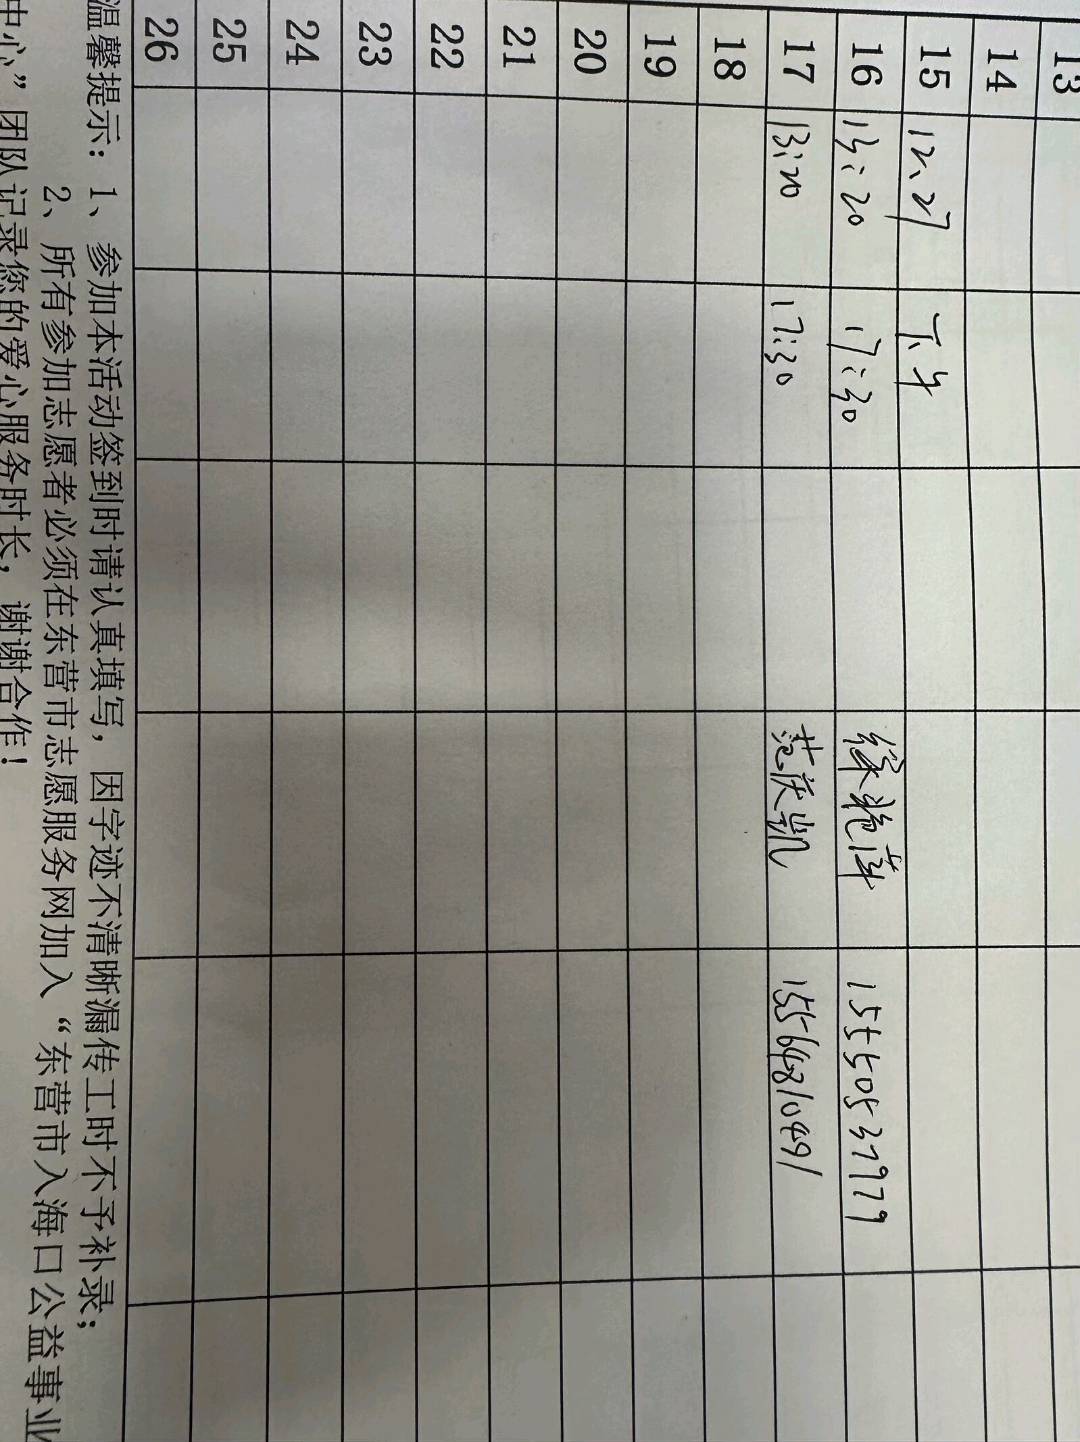 13
14
15 12.27 下午
16 13:20 17:30 徐艳萍 15550537979
17 13:20 17:30 范庆凯 15564810491
18
19
20
21
22
23
24
25
26
温馨提示：1、参加本活动签到时请认真填写，因字迹不清晰漏传工时不予补录；
2、所有参加志愿者必须在东营市志愿服务网加入“东营市入海口公益事业
中心”团队记录您的爱心服务时长，谢谢合作！